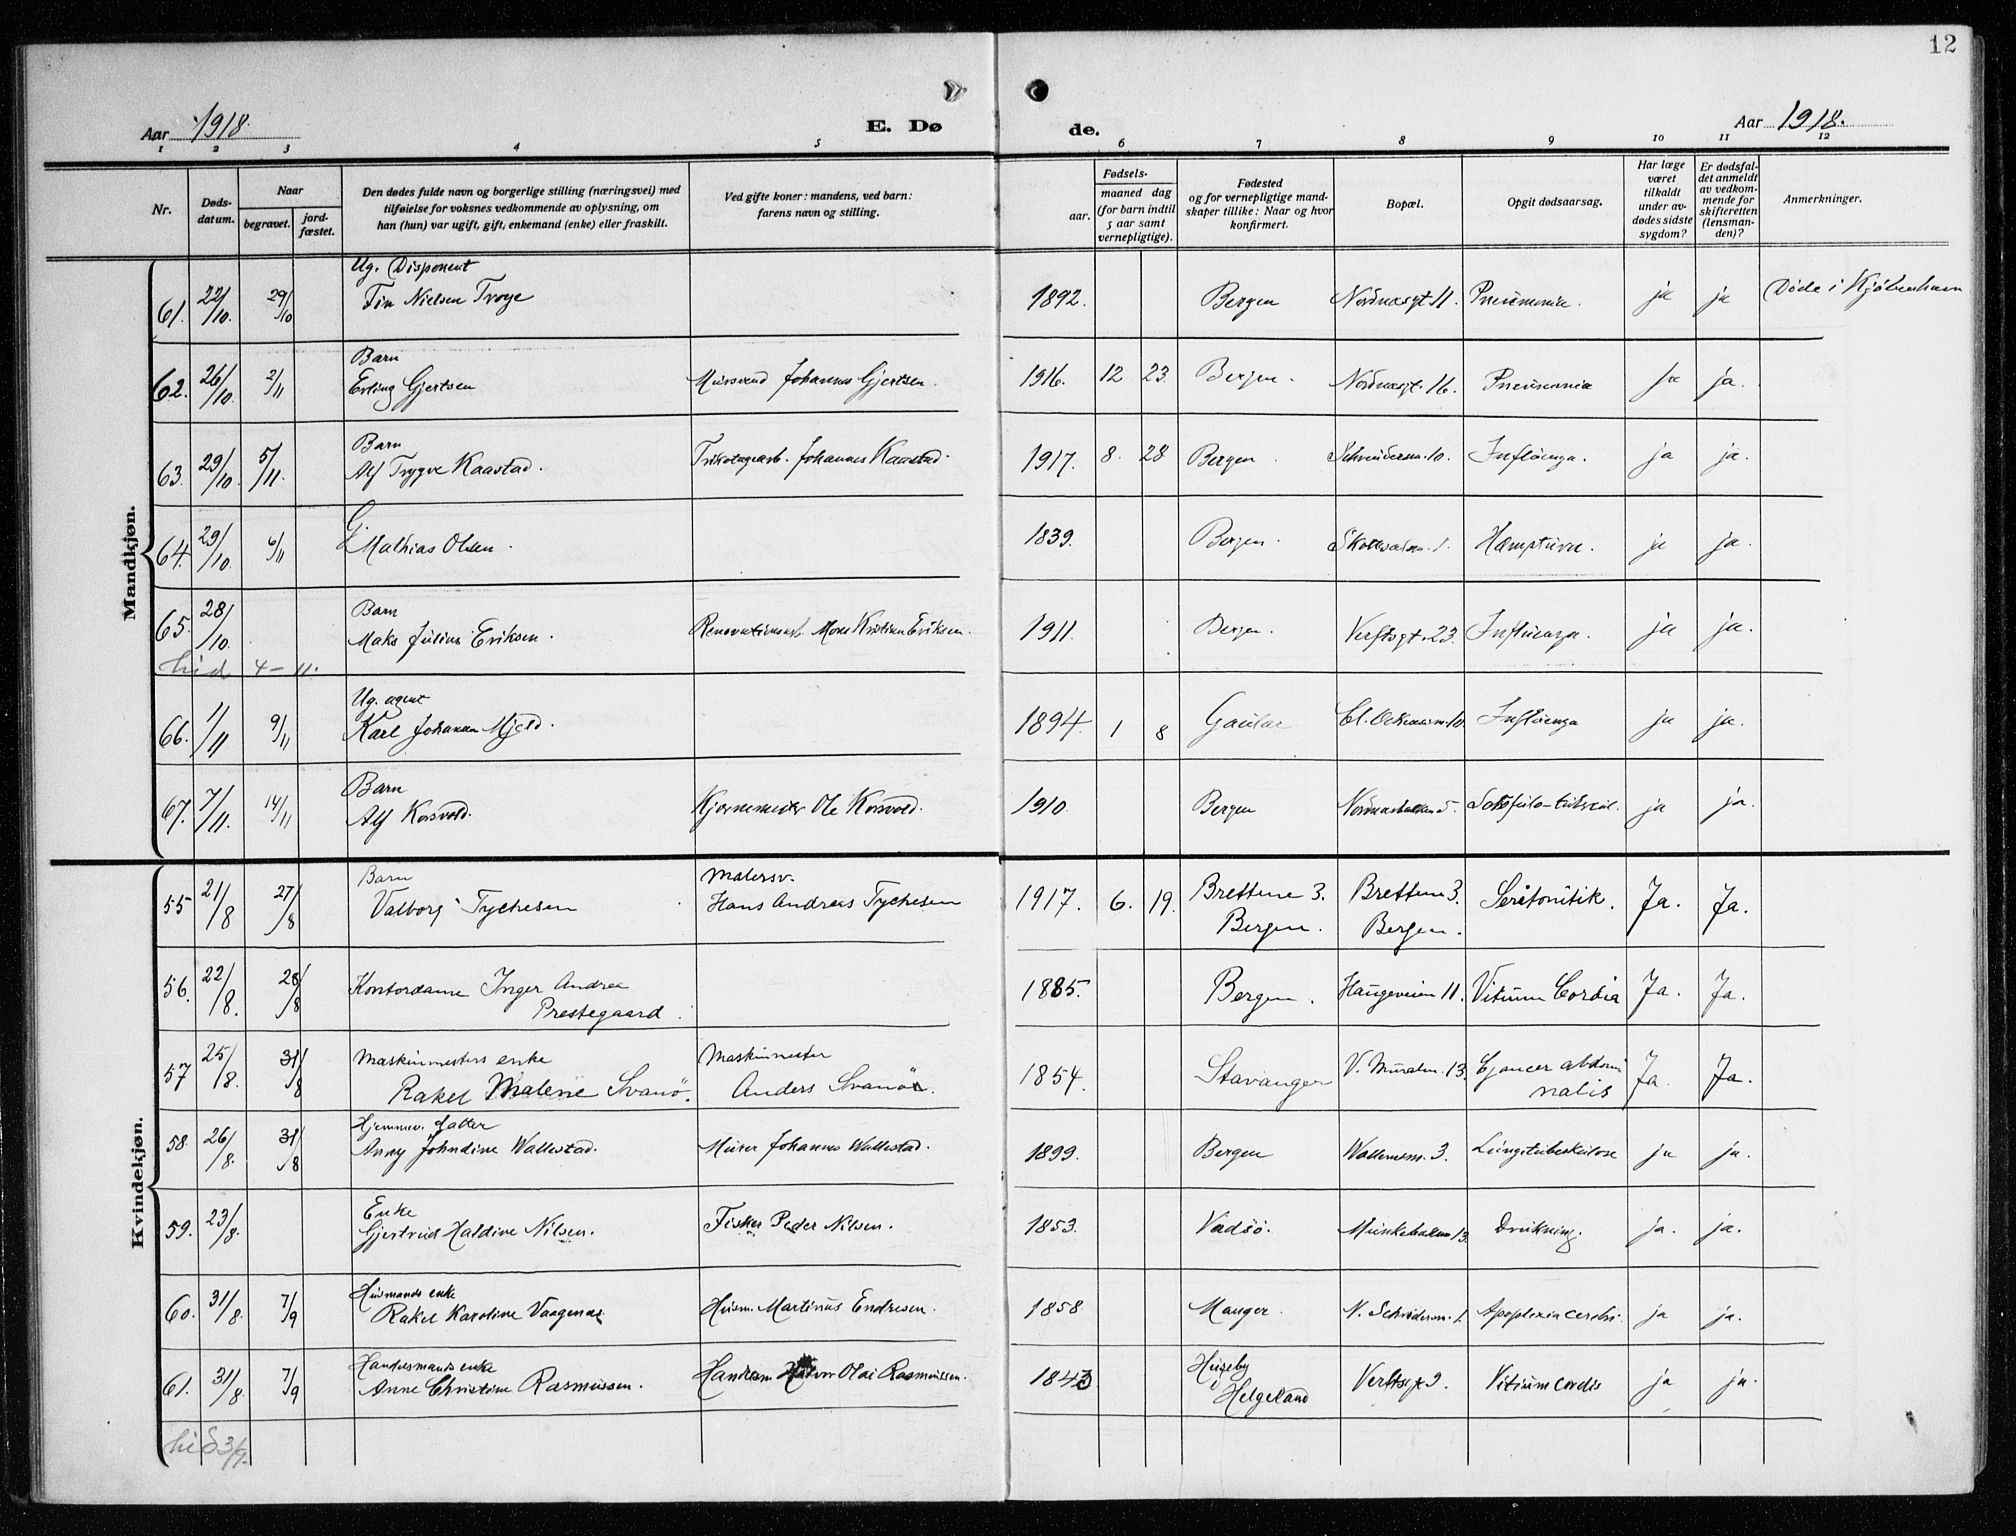 12
Aar 1918.
E. Dø
de.
Aar 1918.
1 2 3 4 5 6 7 8 9 10 11 12
Nr.
Døds-
datum.
Naar
begravet.
jord-
fæstet.
Den dødes fulde navn og borgerlige stilling (næringsvei) med
tilføielse for voksnes vedkommende av oplysning, om
han (hun) var ugift, gift, enkemand (enke) eller fraskilt.
Ved gifte koner: mandens, ved barn:
farens navn og stilling.
Fødsels-
aar.
maaned dag
(for barn indtil
5 aar samt
vernepligtige).
Fødested
og for vernepligtige mand-
skaper tillike: Naar og hvor
konfirmert.
Bopæl.
Opgit dødsaarsag.
Har læge
været
tilkaldt
under av-
dødes sidste
sygdom?
Er dødsfal-
det anmeldt
av vedkom-
mende for
skifteretten
(lensman-
den)?
Anmerkninger.
Mandkjøn.
Ug. Disponent
61. 22/10. 29/10 Fin Nielsen Troye 1892. Bergen Nordnesgt 11. Pneumonia. ja ja Døde i Kjøbenhavn
Barn
62. 26/10. 2/11 Erling Gjertsen Mursvend Johannes Gjertsen. 1916. 12 23. Bergen. Nordnesgt. 16. Pneumonia ja ja.
Barn
63. 29/10 5/11. Alf Trygve Kaastad. Trikotagearb. Johannes Kaastad. 1917. 8. 28 Bergen. 10. Influenza. ja ja.
G.
64. 29/10 6/11 Mathias Olsen. 1839. Bergen. 1. ja ja.
Barn
65. 28/10. Maks Julius Eriksen. Renovationsarb. Mons Kristian Eriksen. 1911. Bergen. Verftsgt. 23. Influenza. ja ja.
hid 4-11.
Ug. agent
66. 1/11 9/11 Karl Johannes Mjeld. 1894. 1 8 Gaular 10 Influenza ja ja.
Barn
67. 7/11. 14/11 Alf Korsvold. Ole Korsvold. 1910 Bergen Nordnesbakken 5. ja ja.
Kvindekjøn.
Barn Malersv.
55 21/8 27/8 Valborg Tychesen Hans Andreas Tychesen 1917. 6. 19. Brettene 3. Brettene 3. Ja. Ja.
Bergen. Bergen.
56. 22/8. 28/8 Kontordame Inger Andrea 1885. Bergen. Haugeveien 11. Vitium Cordia Ja. Ja.
Prestegaard.
Maskinmesters enke Maskinmester
57 25/8. 31/8 Rakel Malene Svanö. Anders Svanö. 1854. Stavanger V. Muralm. 13. Cancer abdomi Ja. Ja.
nalis
Hjemmev. datter
58. 26/8. 31/8 Anny Johndine Wallestad. Murer Johannes Wallestad. 1899. Bergen Wallemsm. 3. Lungetuberkulose ja ja.
Enke
59. 23/8. Gjertrud Haldine Nilsen. Fisker Peder Nilsen. 1853. Vadsö. Munkebakken 13. Drukning. ja. ja.
Husmands enke
60. 31/8. 7/9 Rakel Karoline Vaagenes Husm. Martinus Endresen. 1858. Manger. 1. Apoplexia cerebri. ja ja.
Handelsmands enke Huseby
61. 31/8. 7/9 Anne Christine Rasmussen. Olai Rasmussen. 1843 i Verftsgt 9. Vitium cordis ja ja.
Helgeland
hid 3/9.